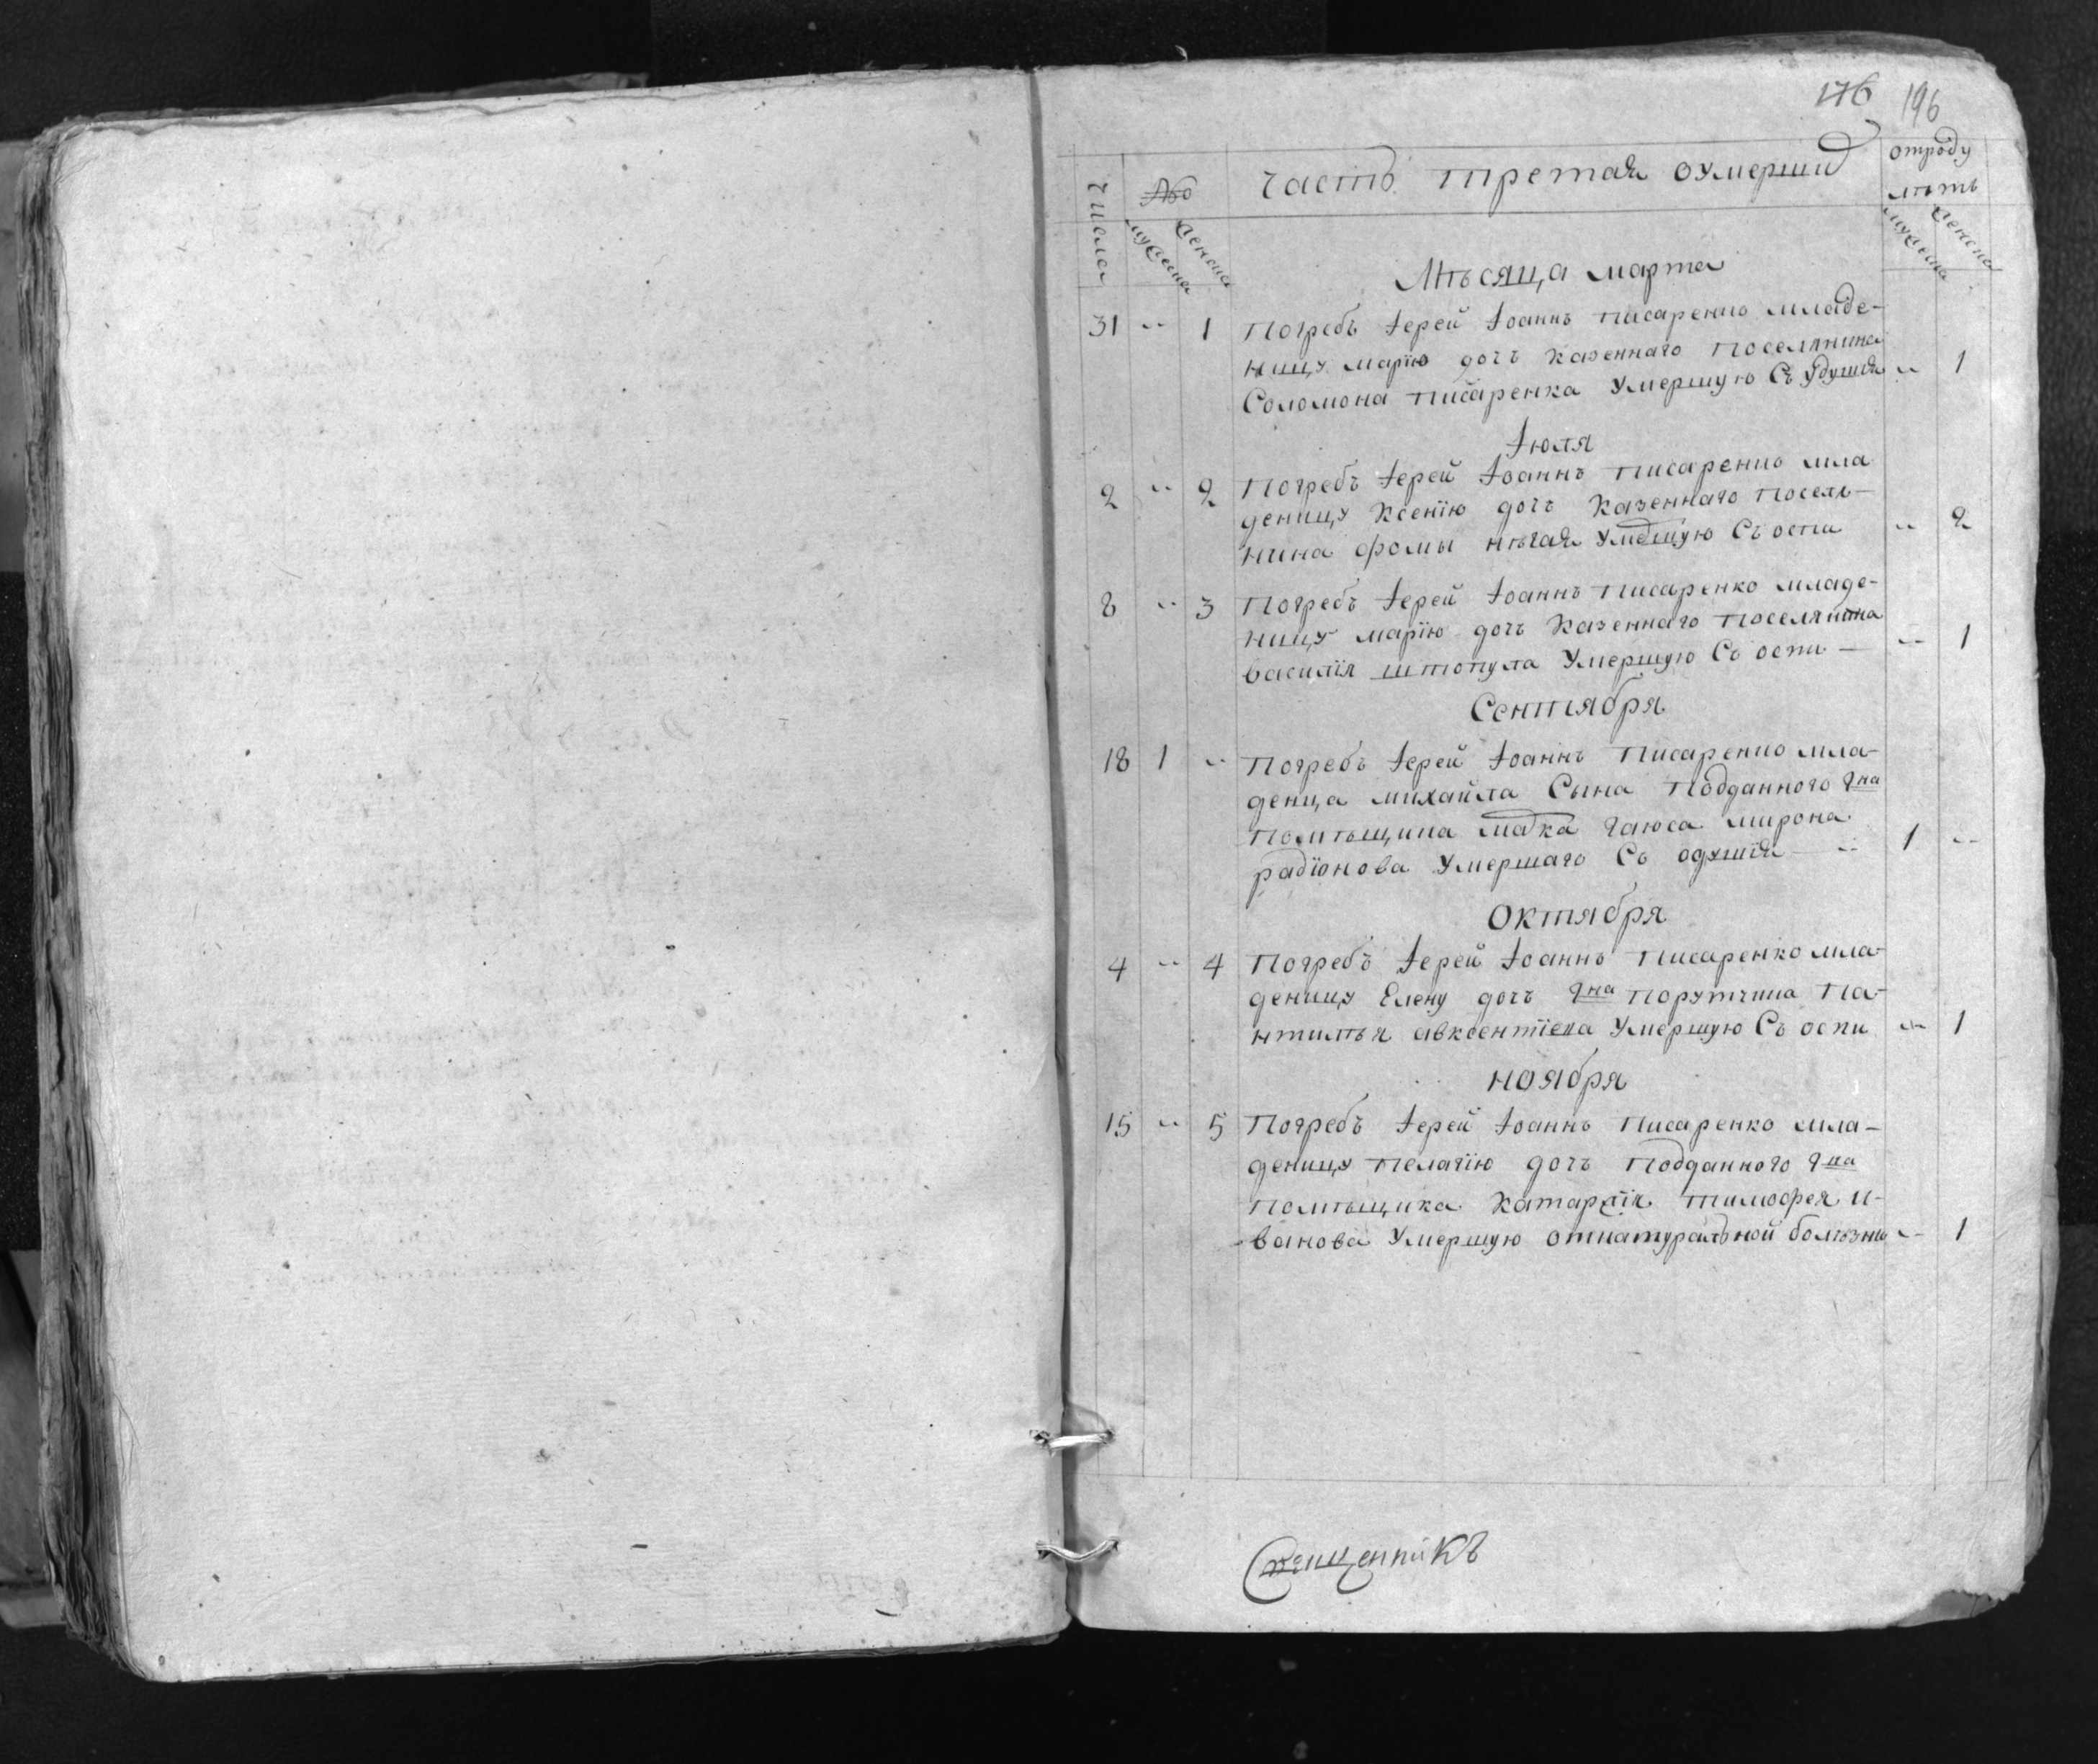 176 196
Числа № Часть третая оумерших отроду лѣтъ
мужеска женска мужеска женска
Мѣсяца марта
31 -- 1 Погребъ Іерей Іоаннъ Писаренко младе-
ницу марію дочъ казеннаго поселянина
Соломона Писаренка умершую Съ удушія -- 1
Іюля
2 -- 2 Погребъ Іерей Іоаннъ Писаренко мла
деницу Ксенію дочъ казеннаго посель-
нина фомы нѣгая умершую Съ оспи -- 2
8 -- 3 Погребъ Іерей Іоаннъ Писаренко младе-
ницу марію дочъ казеннаго поселянина
василія штопула умершую Съ оспи -- 1
Сентября
18 1 -- Погребъ Іерей Іоаннъ Писаренко мла-
денца михайла Сына подданного гна
помѣщика гаюса мирона
радіонова умершаго Съ одушія -- 1 --
Октября
4 -- 4 Погребъ Іерей Іоаннъ Писаренко мла-
деницу Елену дочъ гна порутчика па-
нтилѣя авксентіева умершую Съ оспи -- 1
ноября
15 -- 5 Погребъ Іерей Іоаннъ Писаренко мла-
деницу пелагію дочъ подданного гна
помѣщика катаржія тимофея и-
ванова умершую отнатуральной болѣзни -- 1
Священникъ